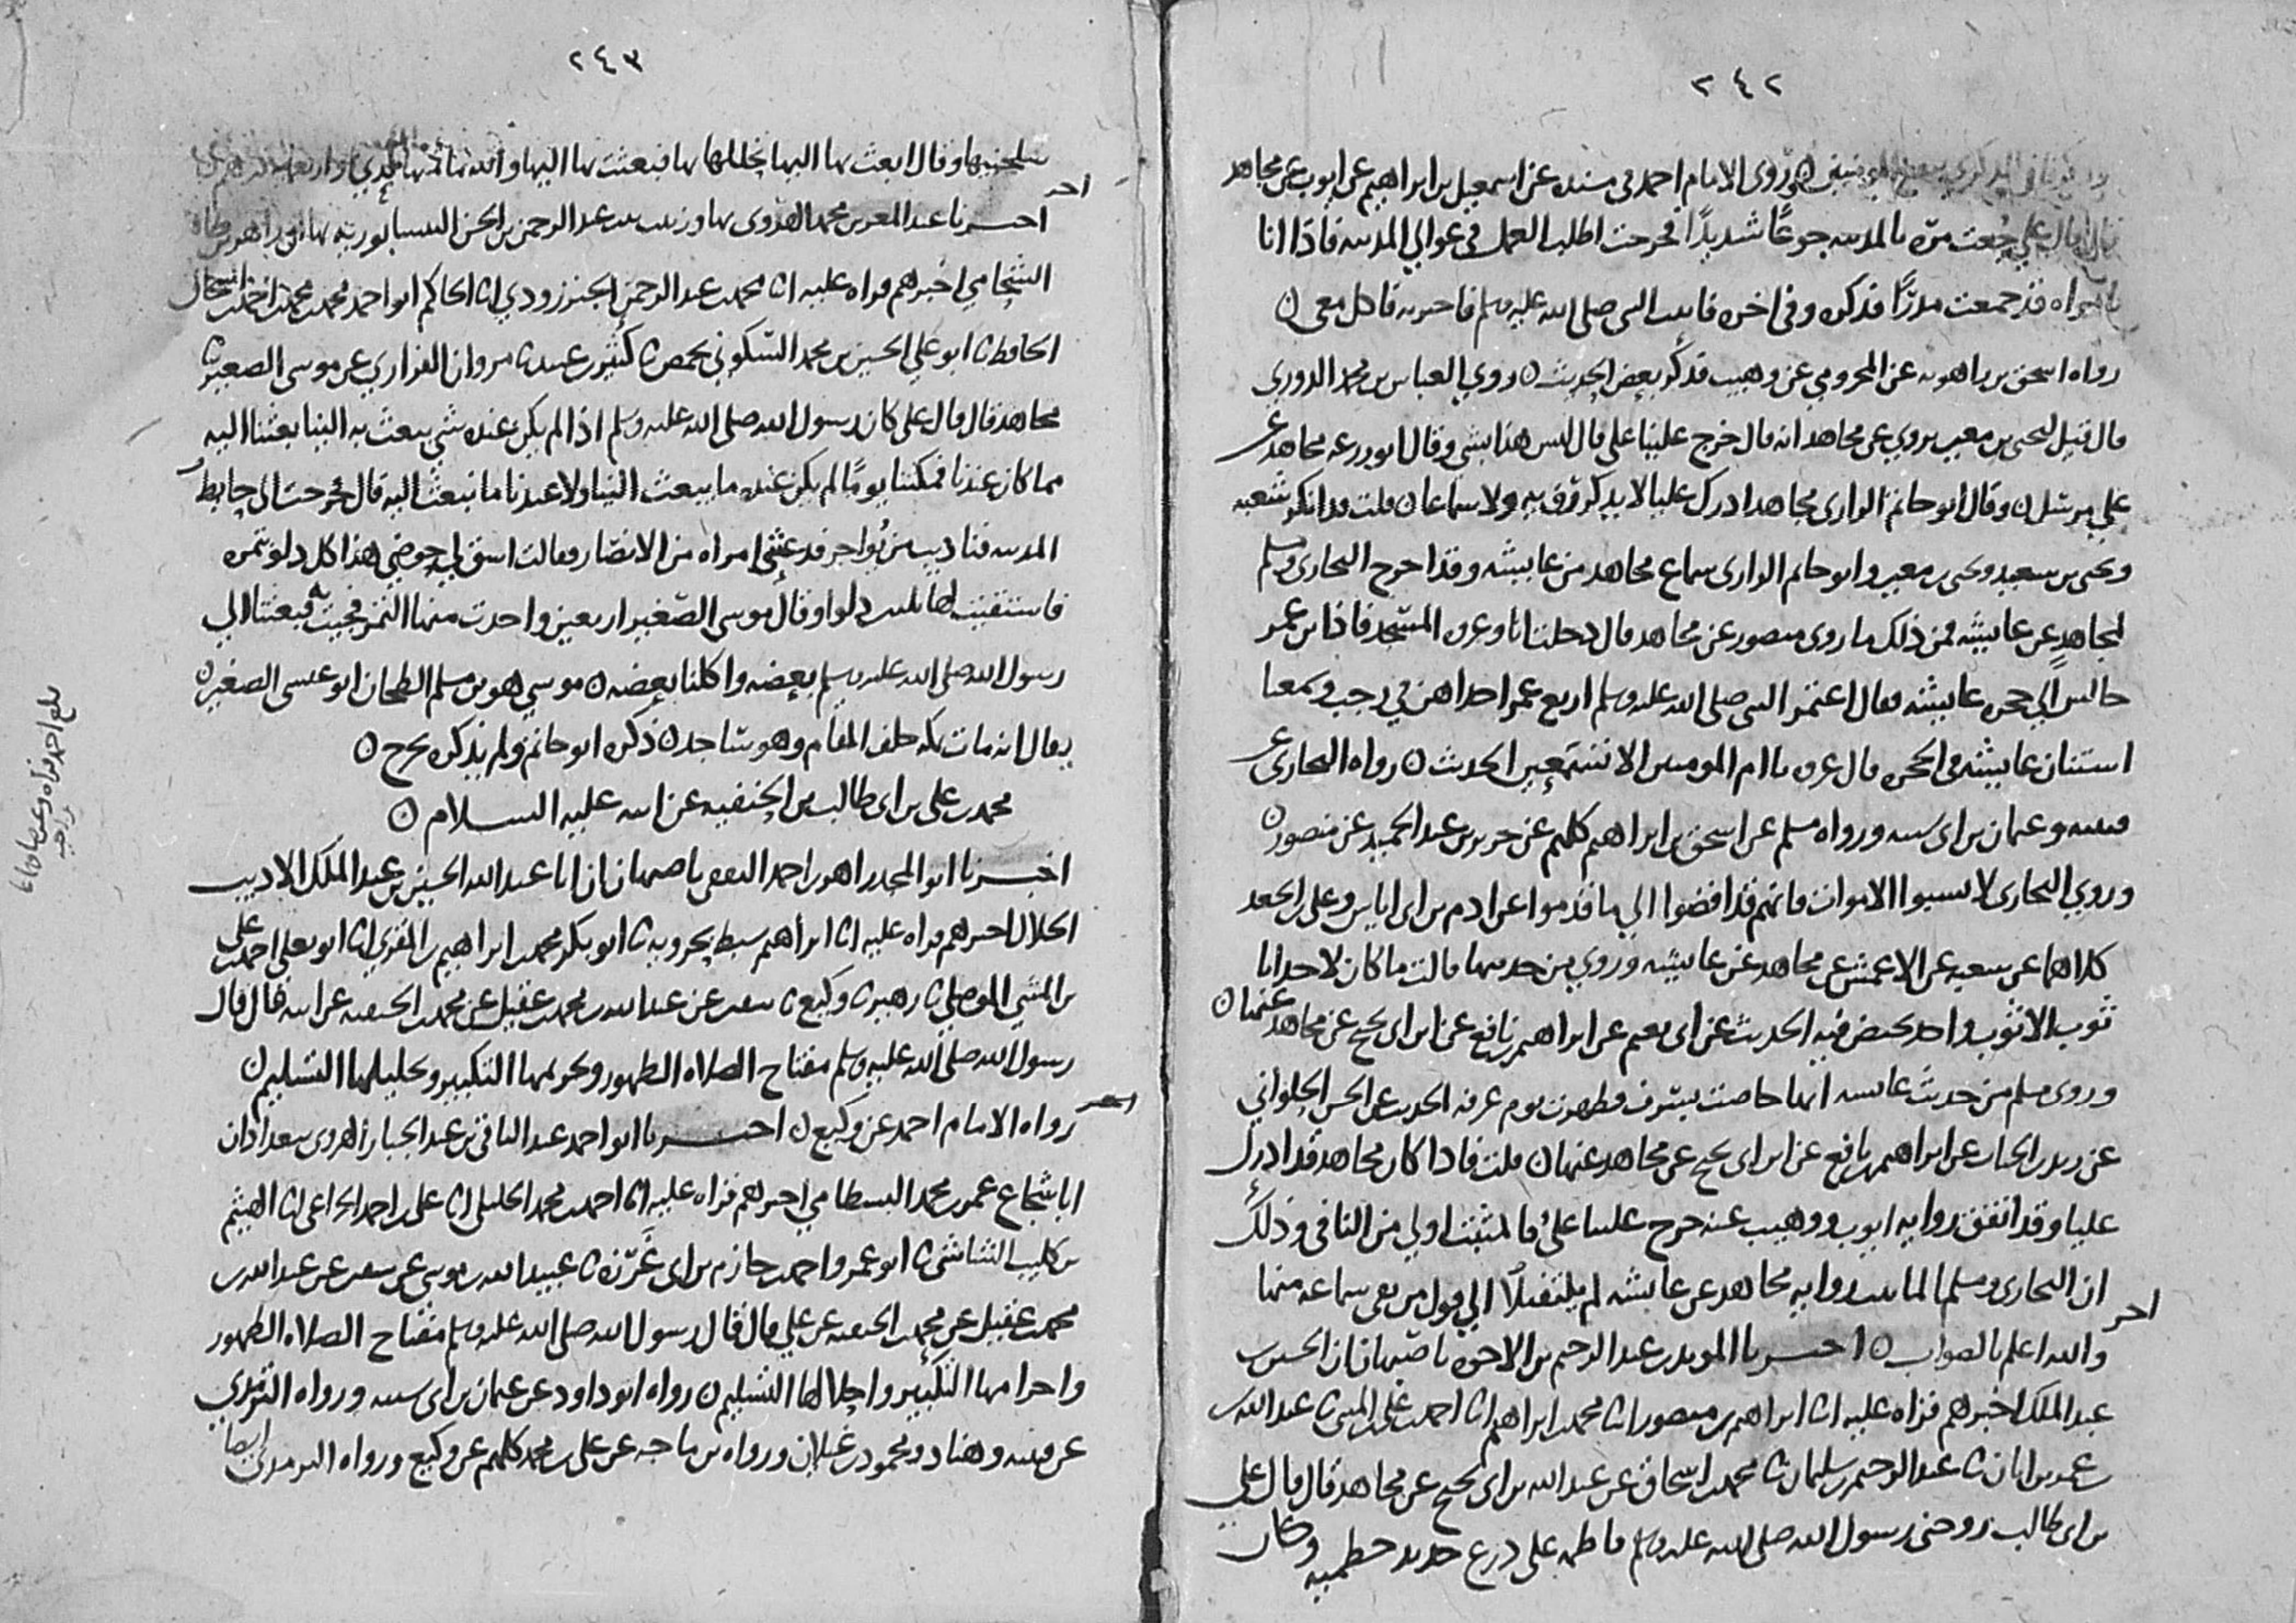 ٢٤٢
روى الامام احمد في مسنده عن اسمعيل بن ابراهيم عن ايوب عن مجاهد
قال قال علي جعت مرة بالمدينه جوعًا شديدًا فخرجت اطلب العمل في عوالي المدينه فاذا انا
بامراه قد جمعت مدرًا فذكره وفي اخره فاتيت النبي صلى الله عليه وسلم فاخبرته فاكل معي ٥
رواه اسحق بن راهويه عن المخزومي عن وهيب فذكر بعض الحديث ٥ روي العباس بن محمد الدوري
قال قيل ليحيى بن معين يروي عن مجاهد انه قال خرج علينا علي قال ليس هذا بشي وقال ابو زرعه مجاهد عن
علي مرسل ٥ وقال ابو حاتم الرازي مجاهد ادرك عليا لا يذكر رؤيه ولا سماعا ٥ قلت قد انكر شعبه
ويحيى بن سعيد ويحيى بن معين وابو حاتم الرازي سماع مجاهد من عايشه وقد اخرج البخاري ومسلم
لمجاهد عن عايشه فمن ذلك ما روى منصور عن مجاهد قال دخلت انا وعروه المسجد فاذا بن عمر
جالس الي حجره عايشه فقال اعتمر النبي صلى الله عليه وسلم اربع عمر احداهن في رجب وسمعنا
استنان عايشه في الحجره قال عروه يا ام المومنين الا تستمعين الحديث ٥ رواه البخاري عن
قتيبه وعثمان بن ابي شيبه ورواه مسلم عن اسحق بن ابراهيم كلهم عن جرير بن عبد الحميد عن منصور ٥
وروي البخاري لا تسبوا الاموات فانهم قد افضوا الي ما قدموا عن ادم بن ابي اياس وعلي بن الجعد
كلاهما عن شعبه عن الاعمش عن مجاهد عن عايشه وروي من حديثها قالت ما كان لاحدانا
ثوب الا ثوب واحد تحيض فيه الحديث عن ابي نعيم عن ابراهيم بن نافع عن ابن ابي نجيح عن مجاهد عنها ٥
وروى مسلم من حديث عايشه انها حاضت بسرف فطهرت يوم عرفه الحديث عن الحسن الحلواني
عن زيد بن الحباب عن ابراهيم بن نافع عن ابن ابي نجيح عن مجاهد عنها ٥ قلت فاذا كان مجاهد قد ادرك
عليا وقد اتفق روايه ايوب ووهيب عنه خرج علينا علي فالمثبت اولي من النافي وذلك
ان البخاري ومسلم لما ثبت روايه مجاهد عن عايشه لم يلتفتا الي قول من نفى سماعه منها
اخر
والله اعلم بالصواب ٥ اخبرنا المويد بن عبد الرحيم بن الاخوه باصبهان ان الحسين بن
عبد الملك اخبرهم قراه عليه انا ابراهيم بن منصور انا محمد بن ابراهيم انا احمد بن علي بن المثنى ثنا عبد الله بن
عمر بن ابان ثنا عبد الرحيم بن سليمان ثنا محمد بن اسحاق عن عبد الله بن ابي نجيح عن مجاهد قال قال علي
بن ابي طالب زوجني رسول الله صلى الله عليه وسلم فاطمه علي درع حديد حطميه وكان
٢٤٣
سلحنيها وقال ابعث بها اليها تحللها بها فبعثت بها اليها والله ما ثمنها
اخر
اخبرنا عبد المعز بن محمد الهروي بها وزينب بنت عبد الرحمن بن الحسن النيسابوريه بها ان زاهر بن طاهر
الشحامي اخبرهم قراه عليه انا محمد بن عبد الرحمن الجنزرودي انا الحاكم ابو احمد محمد بن محمد بن احمد بن اسحاق
الحافظ ثنا ابو علي الحسين بن محمد السكوني بحمص ثنا كثير بن عبيد ثنا مروان الفزاري عن موسى الصغير ثنا
مجاهد قال قال علي كان رسول الله صلى الله عليه وسلم اذا لم يكن عنده شي يبعث به الينا بعثنا اليه
مما كان عندنا فمكثنا يومًا لم يكن عنده ما يبعث الينا ولا عندنا ما نبعث اليه قال فخرجت الى حايط
المدينه فناديت من بواجر قد عثي امراه من الانصار فقالت اسق لي حوضي هذا كل دلو بتمره
فاستقيت لها ثلثين دلوا وقال موسى الصغير اربعين واخذت منها التمر فجيت به فبعثنا الي
رسول الله صلى الله عليه وسلم بعضه واكلنا بعضه ٥ موسي هو بن مسلم الطحان ابو عيسى الصغير ٥
يقال انه مات بمكه خلف المقام وهو ساجد ٥ ذكره ابو حاتم ولم يذكره بجرح ٥
محمد بن علي بن ابي طالب بن الحنفيه عن ابيه عليه السلام ٥
اخبرنا ابو المجد زاهر بن احمد الثقفي باصبهان ان ابا عبد الله الحسين بن عبد الملك الاديب
الخلال اخبرهم قراه عليه انا ابراهيم سبط بحرويه ثنا ابو بكر محمد بن ابراهيم بن المقري انا ابو يعلى احمد بن علي
بن المثنى الموصلي ثنا زهير ثنا وكيع ثنا سفيان عن عبد الله بن محمد بن عقيل عن محمد بن الحنفيه عن ابيه قال قال
رسول الله صلى الله عليه وسلم مفتاح الصلاه الطهور وتحريمها التكبير وتحليلها التسليم ٥
اخر
رواه الامام احمد عن وكيع ٥ اخبرنا ابو احمد عبد الباقي بن عبد الجبار الهروي ببغداد ان
ابا شجاع عمر بن محمد البسطامي اخبرهم قراه عليه انا احمد بن محمد الخليلي انا علي بن احمد الخزاعي انا الهيثم
بن كليب الشاشي ثنا ابو عمرو احمد بن حازم بن ابي غرزه ثنا عبيد الله بن موسى عن سفيان عن عبد الله بن
محمد بن عقيل عن محمد بن الحنفيه عن علي قال قال رسول الله صلى الله عليه وسلم مفتاح الصلاه الطهور
واحرامها التكبير واحلالها التسليم ٥ رواه ابو داود عن عثمان بن ابي شيبه ورواه الترمذي
عن قتيبه وهناد ومحمود بن غيلان ورواه بن ماجه عن علي بن محمد كلهم عن وكيع ورواه الترمذي ايضا
بلغ احمد قراه